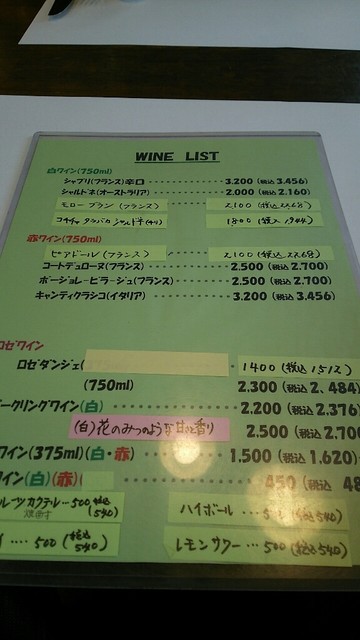 WINE LIST
白ワイン(750ml)
シャブリ(フランス)辛口 ············ 3.200 (税込 3.456)
シャルドネ(オーストラリア) ·········· 2.000 (税込 2.160)
モローブラン (フランス) 2,100 (税込 2268)
シャルドネ(チリ) 1800 (税込 1944)
赤ワイン(750ml)
ピアドール(フランス) 2,100 (税込 2268)
コートデュローヌ(フランス) ·········· 2.500 (税込 2.700)
ボージョレービラージュ(フランス) ······ 2.500 (税込 2.700)
キャンティクラシコ(イタリア) ········· 3.200 (税込 3.456)
ロゼワイン
ロゼダンジェ( · 1400 (税込 1512)
(750ml) 2.300 (税込 2、484)
ークリングワイン(白) ·········· 2.200 (税込 2.376
(白)花のみつのような甘い香り 2.500 (税込 2.70
ワイン(375ml)(白・赤) ········ 1.500 (税込 1.620)
イン(白)(赤)( 450 (税込 48
ルーツカクテル…500(税込540) ハイボール … 税込540)
… 500 (税込540) レモンサワー … 500 (税込540)